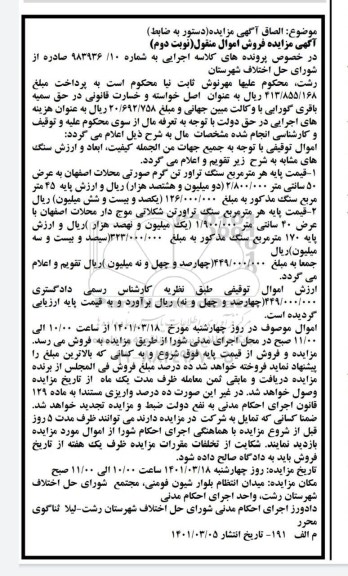 موضوع: الصاق آگهی مزایده(دستور به ضابط)
آگهی مزایده فروش اموال منقول(نوبت دوم)
در خصوص پرونده های کلاسه اجرایی به شماره ۱۰/ ۹۸۳۹۳۶ صادره از
شورای حل اختلاف شهرستان
رشت، محکوم علیها مهرنوش ثابت نیا محکوم است به پرداخت مبلغ
۴۱۳/۸۵۵/۱۶۸ ریال به عنوان اصل خواسته و خسارت قانونی در حق سمیه
باقری گورابی با وکالت مبین جهانی و مبلغ ۲۰/۶۹۲/۷۵۸ ریال به عنوان هزینه
های اجرایی در حق دولت با توجه به تعرفه مال از سوی محکوم علیه و توقیف
و کارشناسی انجام شده مشخصات مال به شرح ذیل اعلام می گردد:
اموال توقیفی با توجه به جمیع جهات من الجمله کیفیت، ابعاد و ارزش سنگ
های مشابه به شرح زیر تقویم و اعلام می گردد.
۱-قیمت پایه هر مترمربع سنگ تراور تن گرم صورتی محلات اصفهان به عرض
۵۰ سانتی متر ۲/۸۰۰/۰۰۰ (دو میلیون و هشتصد هزار) ریال و ارزش پایه ۴۵ متر
مربع سنگ مذکور به مبلغ ۱۲۶/۰۰۰/۰۰۰ (یکصد و بیست و شش میلیون) ریال
۲-قیمت پایه هر مترمربع سنگ تراورتن شکلاتی موج دار محلات اصفهان با
عرض ۴۰ سانتی متر ۱/۹۰۰/۰۰۰ (یک میلیون و نهصد هزار )ریال و ارزش
پایه ۱۷۰ مترمربع سنگ مذکور به مبلغ ۳۲۳/۰۰۰/۰۰۰(سیصد و بیست و سه
میلیون)ریال
جمعا به مبلغ ۴۴۹/۰۰۰/۰۰۰(چهارصد و چهل و نه میلیون )ریال تقویم و اعلام
می گردد.
ارزش اموال توقیفی طبق نظریه کارشناس رسمی دادگستری
۴۴۹/۰۰۰/۰۰۰(چهارصد و چهل و نه) ریال برآورد و به قیمت پایه ارزیابی
گردیده است.
اموال موصوف در روز چهارشنبه مورخ ۱۴۰۱/۰۳/۱۸ از ساعت ۱۰/۰۰ الی
۱۱/۰۰ صبح در محل اجرای مدنی شورا از طریق مزایده به فروش می رسد.
مزایده و فروش از قیمت پایه فوق شروع و به کسانی که بالاترین مبلغ را
پیشنهاد نماید فروخته خواهد شد ده درصد مبلغ فروش فی المجلس از برنده
مزایده دریافت و مابقی ثمن معامله ظرف مدت یک ماه از تاریخ مزایده
وصول خواهد شد. در غیر این صورت ده درصد واریزی مستندا به ماده ۱۲۹
قانون اجرای احکام مدنی به نفع دولت ضبط و مزایده تجدید خواهد شد.
ضمنا کسانی که تمایل به شرکت در مزایده دارند می توانند ظرف مدت ۵ روز
قبل از شروع مزایده با هماهنگی اجرای احکام شورا از اموال مورد مزایده
بازدید نمایند. شکایت از تخلفات مقررات مزایده ظرف یک هفته از تاریخ
فروش باید به دادگاه صالح داده شود.
تاریخ مزایده: روز چهارشنبه ۱۴۰۱/۰۳/۱۸ ساعت ۱۰/۰۰ الی ۱۱/۰۰ صبح
مکان مزایده: میدان انتظام بلوار شیون فومنی، مجتمع شورای حل اختلاف
شهرستان رشت، واحد اجرای احکام مدنی
دادورز اجرای احکام مدنی شورای حل اختلاف شهرستان رشت-لیلا ثناگوی
محرر
م الف ۱۹۱- تاریخ انتشار ۱۴۰۱/۰۳/۰۵